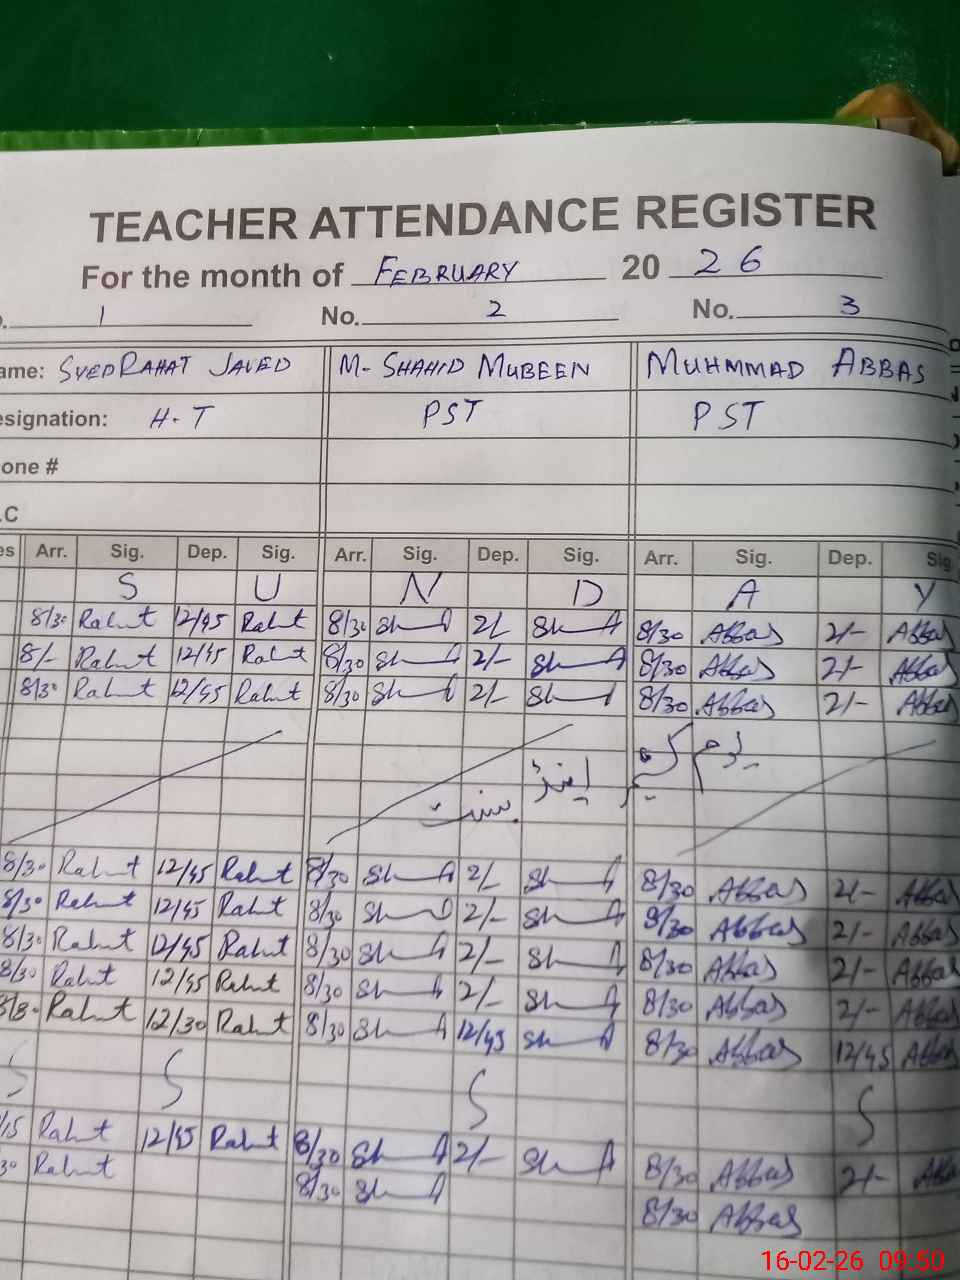 TEACHER ATTENDANCE REGISTER
For the month of FEBRUARY 20 26
1 No. 2 No. 3
ame: SYED RAHAT JAVED M- SHAHID MUBEEN MUHMMAD ABBAS
esignation: H-T PST PST
one #
.C
es Arr. Sig. Dep. Sig. Arr. Sig. Dep. Sig. Arr. Sig. Dep. Sig
S U N D A Y
8/30 Rahat 12/45 Rahat 8/30 2/- 8/30 Abbas 2/- Abbas
8/- Rahat 12/45 Rahat 8/30 2/- 8/30 Abbas 2/- Abbas
8/30 Rahat 12/45 Rahat 8/30 2/- 8/30 Abbas 2/- Abbas
یوم
اینڈ بسنت
8/30 Rahat 12/45 Rahat 8/30 2/- 8/30 Abbas 2/- Abbas
8/30 Rahat 12/45 Rahat 8/30 2/- 8/30 Abbas 2/- Abbas
8/30 Rahat 12/45 Rahat 8/30 2/- 8/30 Abbas 2/- Abbas
8/30 Rahat 12/45 Rahat 8/30 2/- 8/30 Abbas 2/- Abbas
Rahat 12/30 Rahat 8/30 12/45 8/30 Abbas 12/45 Abbas
S S S S
/15 Rahat 12/45 Rahat 8/30 2/- 8/30 Abbas 2/- Abba
30 Rahat 8/30 8/30 Abbas
16-02-26 09:50